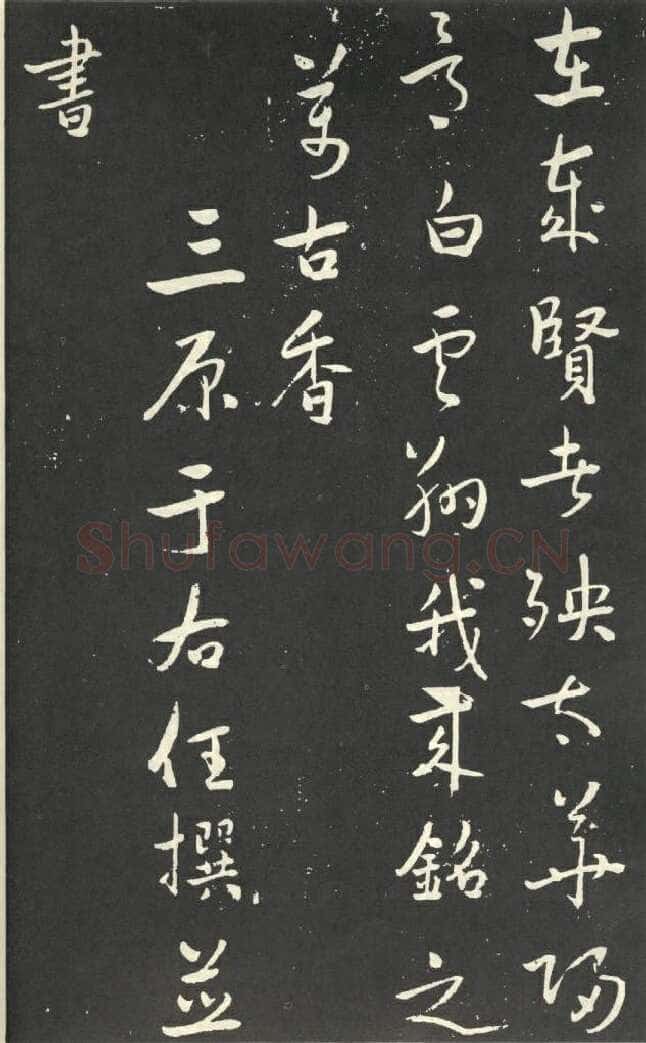 在賢者殃太華歸
兮白雲翔我來銘之
萬古香
三原于右任撰並
書
Shufawang.CN